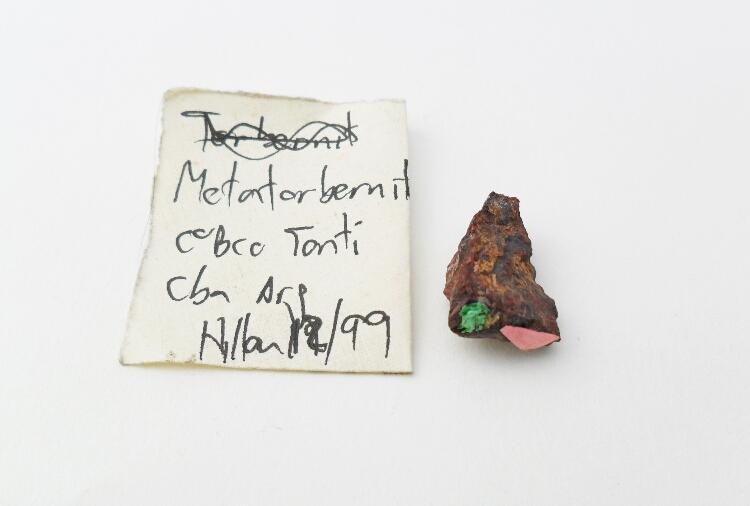 Torbernit
Metatorbernit
Cº Bco Tanti
Cba Arg
12/99